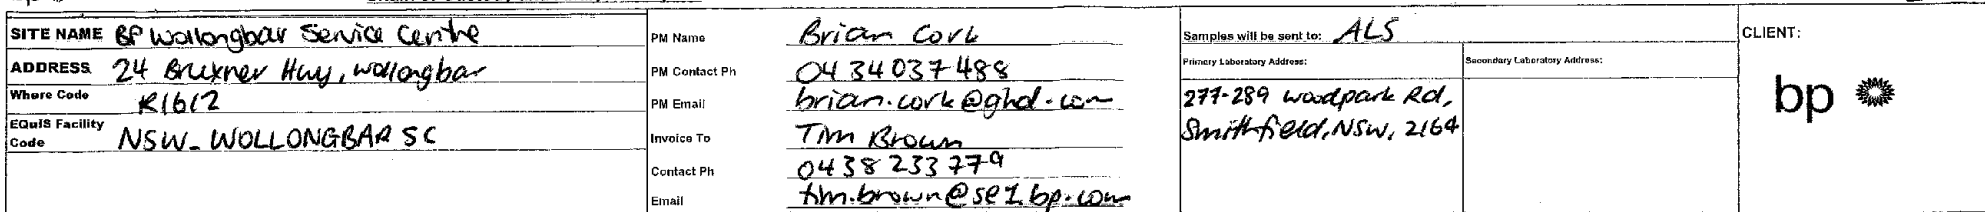 SITE NAME BP Wollongbar Service Centre
ADDRESS 24 Bruxner Hwy, Wollongbar
Where Code R1612
EQuIS Facility Code NSW_WOLLONGBAR SC
PM Name Brian Cork
PM Contact Ph 0434037488
PM Email brian.cork@ghd.com
Invoice To Tim Brown
Contact Ph 0438 233 779
Email tim.brown@se1.bp.com
Samples will be sent to: ALS
Primary Laboratory Address:
277-289 Woodpark Rd,
Smithfield, NSW, 2164
Secondary Laboratory Address:
CLIENT:
bp